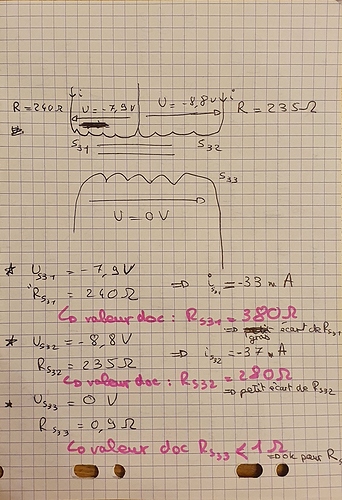 i i
R = 240Ω U = -7,9V U = -8,8V R = 235Ω
S31 S32
S33
U = 0V
* US31 = -7,9V ⇒ iS31 = -33 mA
RS31 = 240Ω
↳ valeur doc : RS31 = 380Ω
⇒ gros écart de RS31
* US32 = -8,8V ⇒ iS32 = -37 mA
RS32 = 235Ω
↳ valeur doc : RS32 = 280Ω
⇒ petit écart de RS32
* US33 = 0 V
RS33 = 0,9Ω
↳ valeur doc RS33 < 1Ω
⇒ ok pour RS